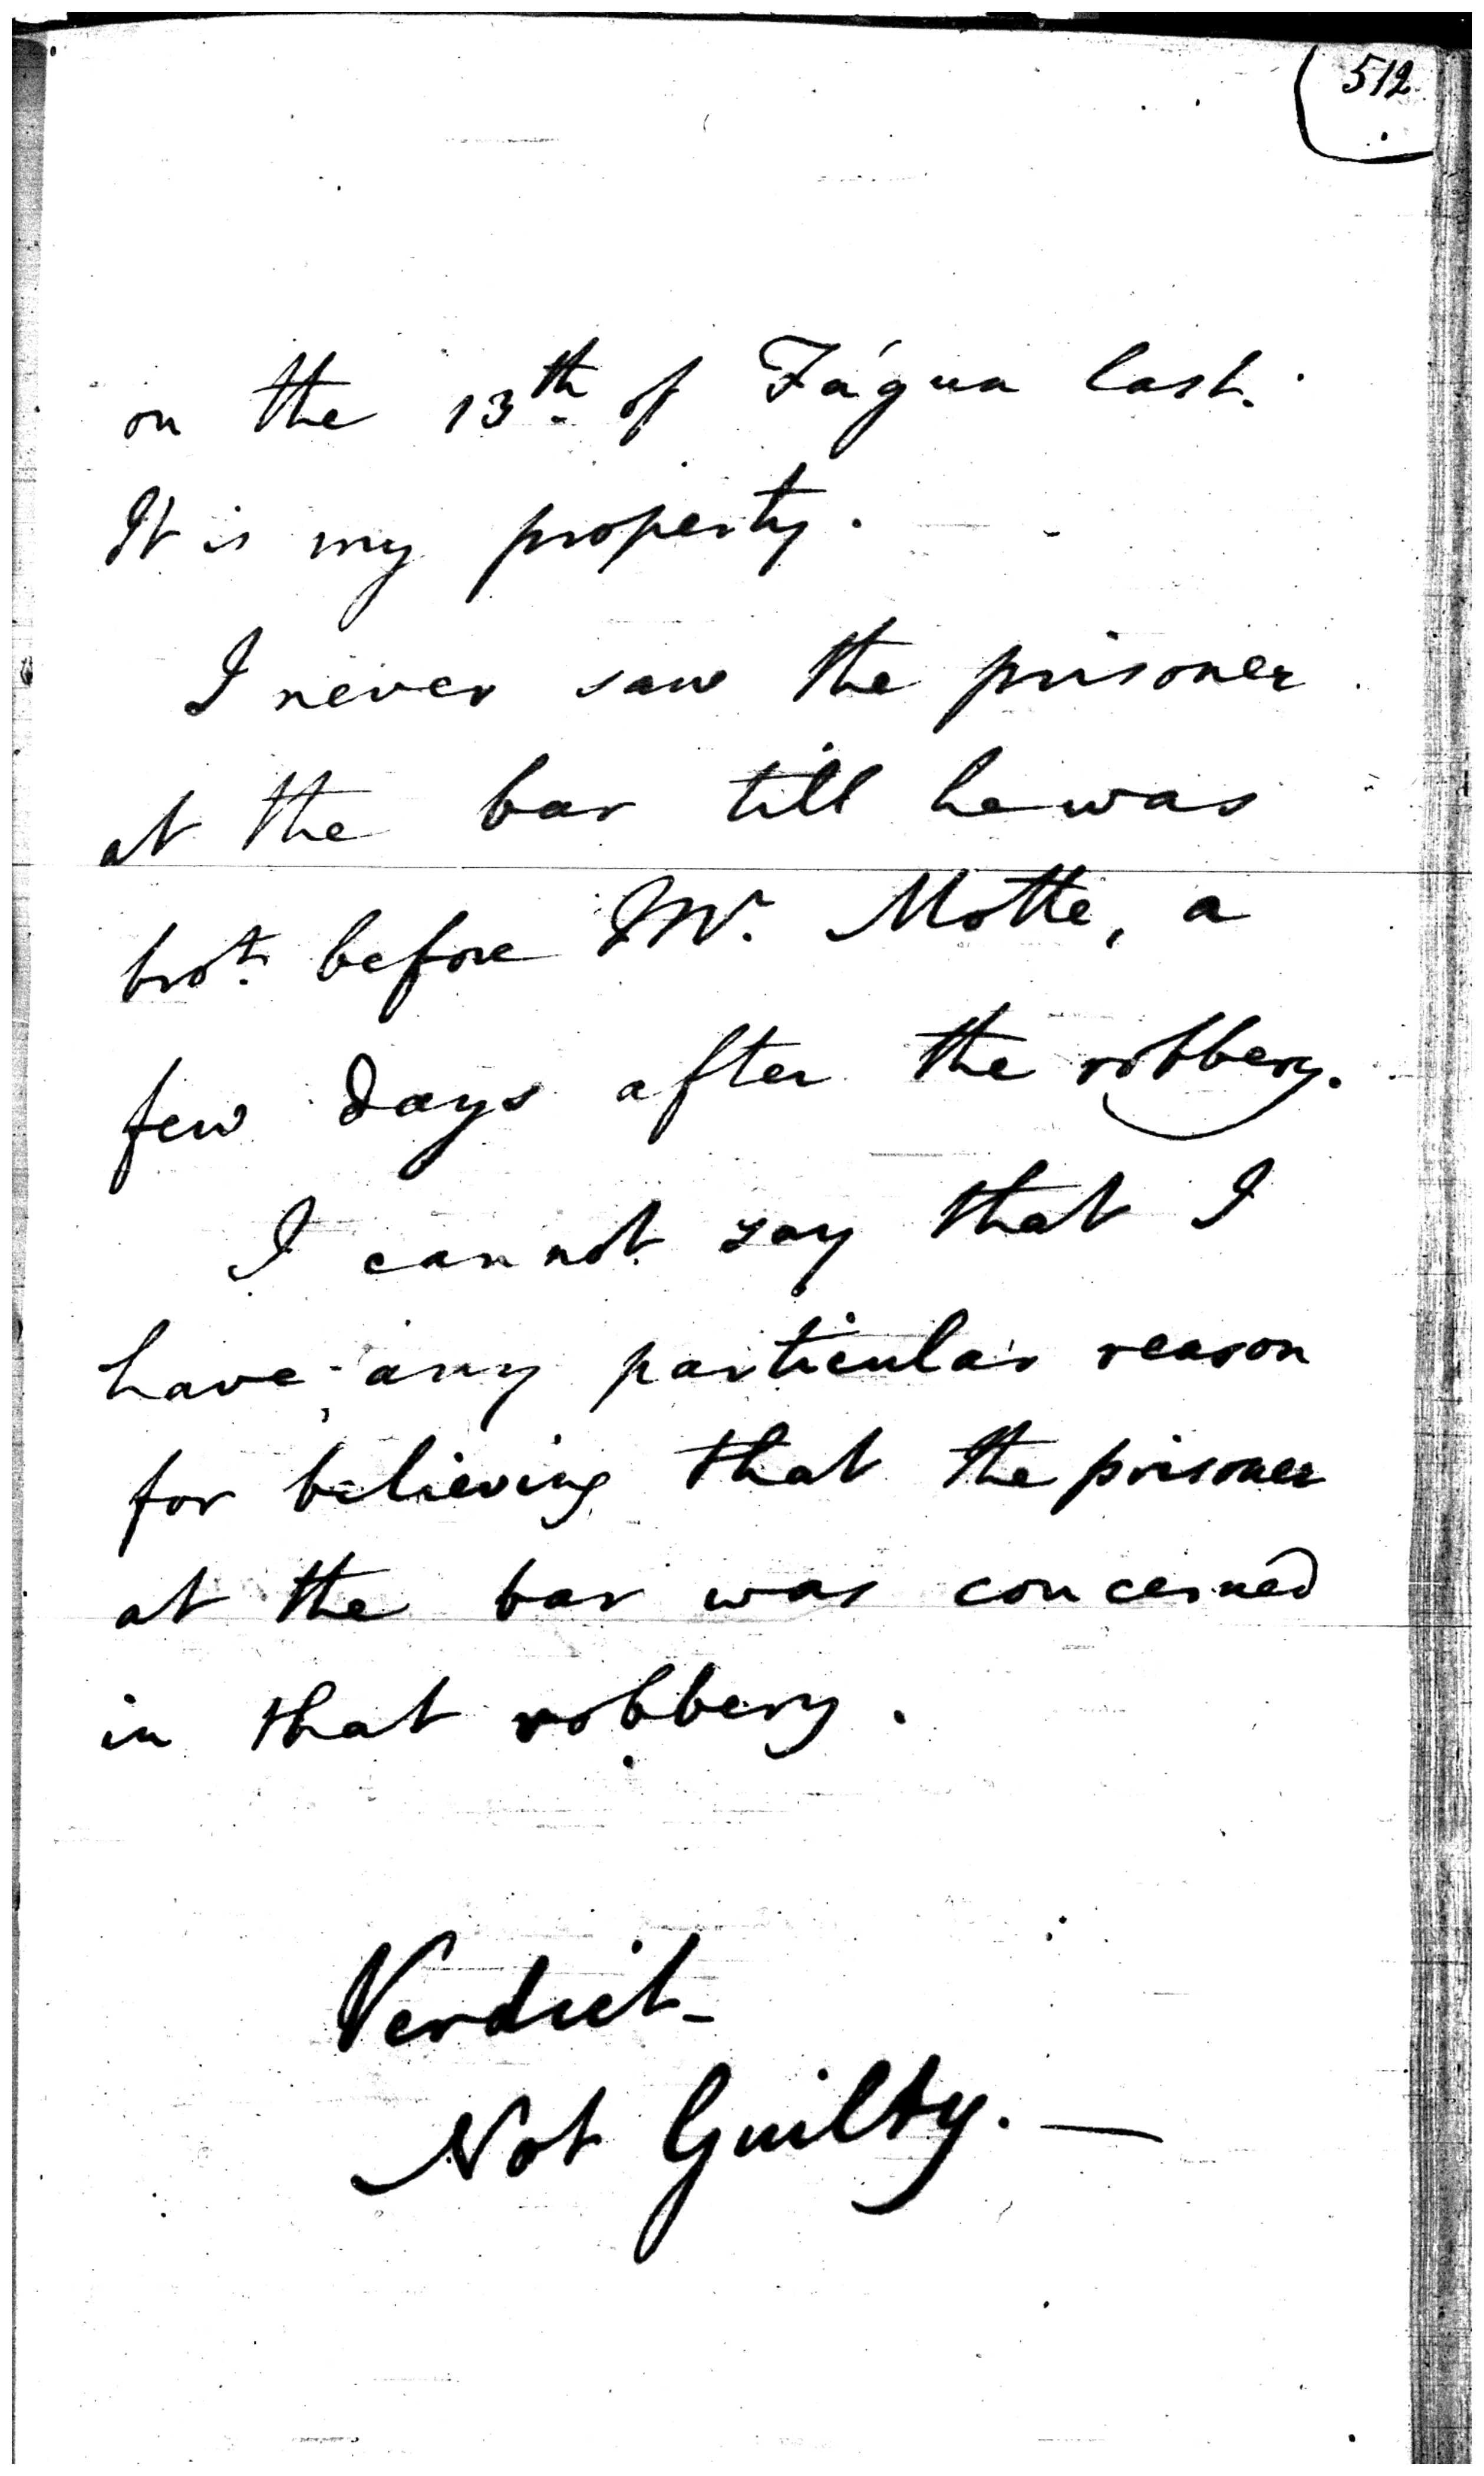 512
on the 13th of Fágun last.
It is my property.
I never saw the prisoner
at the bar till he was
brot. before Mr. Motte, a
few days after the robbery.
I cannot say that I
have any particular reason
for believing that the prisoner
at the bar was concerned
in that robbery.
Verdict-
Not Guilty. —